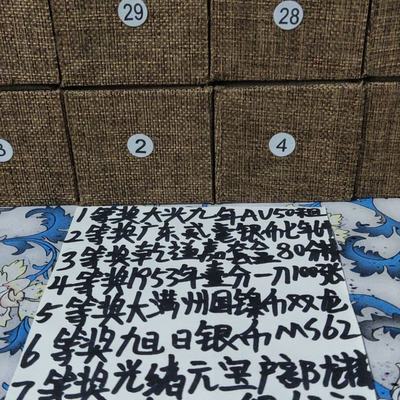 29
28
3
2
4
1等奖大头九年AU50粗
2等奖广东贰毫银币七年64
3等奖乾隆鎏金80分
4等奖1953年壹分一刀100张
5等奖大满州国镍币双龙
6等奖旭日银币MS62
7等奖光绪元宝户部龙